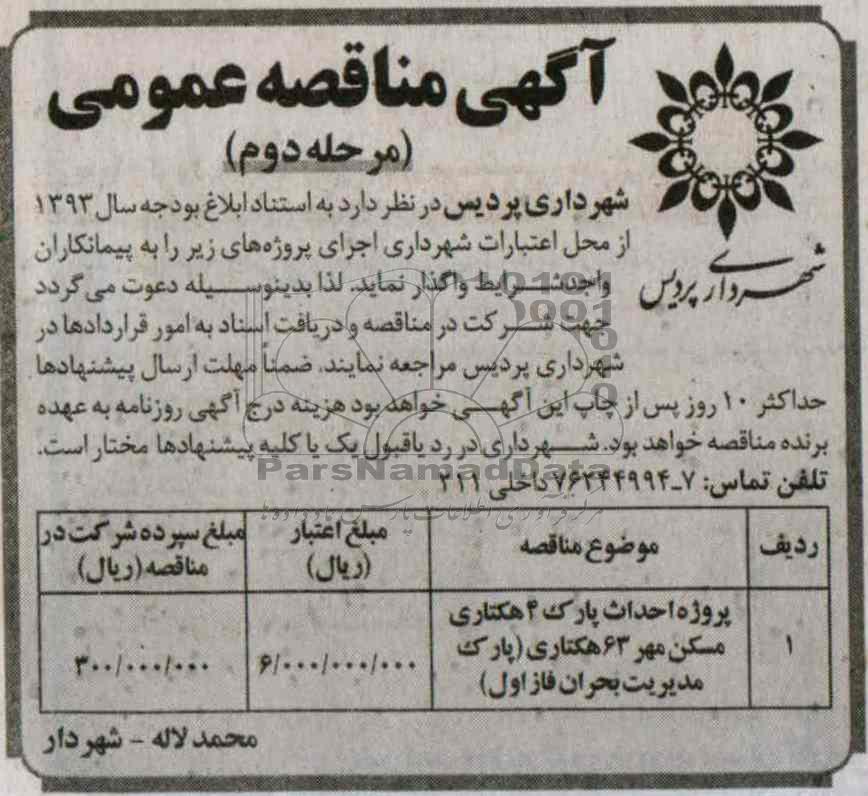 آگهی مناقصه عمومی
(مرحله دوم)
شهرداری پردیس
شهرداری پردیس در نظر دارد به استناد ابلاغ بودجه سال ۱۳۹۳
از محل اعتبارات شهرداری اجرای پروژه‌های زیر را به پیمانکاران
واجدشرایط واگذار نماید. لذا بدینوسیله دعوت می‌گردد
جهت شرکت در مناقصه و دریافت اسناد به امور قراردادها در
شهرداری پردیس مراجعه نمایند. ضمناً مهلت ارسال پیشنهادها
حداکثر ۱۰ روز پس از چاپ این آگهی خواهد بود هزینه درج آگهی روزنامه به عهده
برنده مناقصه خواهد بود. شهرداری در رد یاقبول یک یا کلیه پیشنهادها مختار است.
تلفن تماس: ۷-۷۶۲۴۴۹۹۴ داخلی ۳۱۱
ParsNamadData
ردیف موضوع مناقصه مبلغ اعتبار (ریال) مبلغ سپرده شرکت در مناقصه (ریال)
۱ پروژه احداث پارک ۴ هکتاری مسکن مهر ۶۳ هکتاری (پارک مدیریت بحران فاز اول) ۶/۰۰۰/۰۰۰/۰۰۰ ۳۰۰/۰۰۰/۰۰۰
محمد لاله - شهردار